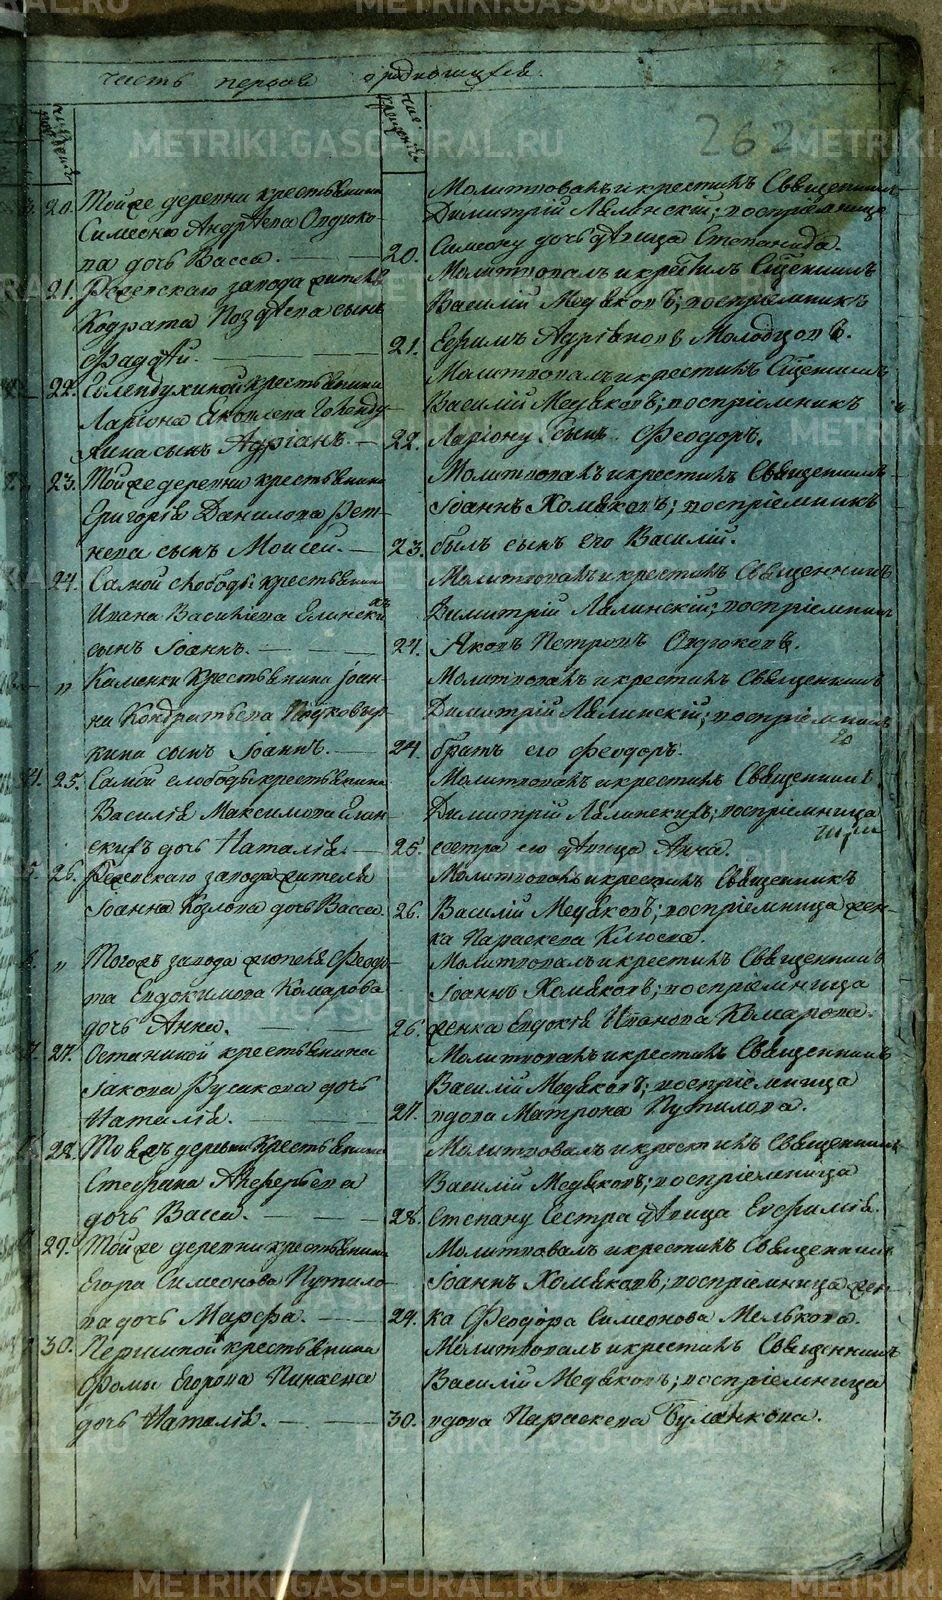 часть первая о раждающихся.
число рождения
число крещения
262
20. Той же деревни крестьянина
Симеона Андреева Ондюко-
ва дочь Васса.
Молитвовалъ и крестилъ Священникъ
Димитрій Лялинскій; воспріемница
20. Симеону дочь девица Степанида.
21. Режевскаго завода жителя
Кодрата Поздеева сынъ
Фаддей.
Молитвовалъ и крестилъ Сщенникъ
Василій Медяковъ; воспріемникъ
21. Ефимъ Адріановъ Молодцовъ.
22. крестьянина
Ларіона Яковлева Голенду-
хина сынъ Адріанъ.
Молитвовалъ и крестилъ Сщенникъ
Василій Медяковъ; воспріемникъ
22. Ларіону сынъ Феодоръ.
23. Той же деревни крестьянина
Григорія Данилова Рет-
нева сынъ Моисей.
Молитвовалъ и крестилъ Священникъ
Іоаннъ Хомяковъ; воспріемникъ
23. былъ сынъ его Василій.
24. Самой слободы крестьянина
Ивана Васильева Елинскихъ
сынъ Іоаннъ.
Молитвовалъ и крестилъ Священникъ
Димитрій Лялинскій; воспріемникъ
24. Яковъ Петровъ Ондюковъ.
„ Каменки крестьянина Іоан-
на Кондратьева
кина сынъ Іоаннъ.
Молитвовалъ и крестилъ Священникъ
Димитрій Лялинскій; воспріемникъ
24. братъ его Феодоръ.
25. Самой слободы крестьянина
Василія Максимова Елин-
скихъ дочь Наталія.
Молитвовалъ и крестилъ Священникъ
Димитрій Лялинскихъ; воспріемница
25. сестра его девица Анна.
26. Режевскаго завода жителя
Іоанна Козлова дочь Васса
Молитвовалъ и крестилъ Священникъ
26. Василій Медяковъ; воспріемница жен-
ка Параскева Клюева.
„ Тогожъ завода жителя Феодо-
та Евдокимова Комарова
дочь Анна.
Молитвовалъ и крестилъ Священникъ
Іоаннъ Хомяковъ; воспріемница
26. женка Евдокія Иванова Комарова.
27. Останиной крестьянина
Іакова Русакова дочь
Наталія.
Молитвовалъ и крестилъ Священникъ
Василій Медяковъ; воспріемница
27. вдова Матрона Путилова.
28. деревни крестьянина
Стефана Алферьева
дочь Васса.
Молитвовалъ и крестилъ Священникъ
Василій Медяковъ; воспріемница
28. Степану сестра девица Евфимія.
29. Той же деревни крестьянина
Егора Симеонова Путило-
ва дочь Марфа.
Молитвовалъ и крестилъ Священникъ
Іоаннъ Хомяковъ; воспріемница жен-
29. ка Феодора Симеонова Мелькова.
30. Першиной крестьянина
Фомы Егорова Пинаева
дочь Наталія.
Молитвовалъ и крестилъ Священникъ
Василій Медяковъ; воспріемница
30. вдова Параскева Буланкова.
METRIKI.GASO-URAL.RU